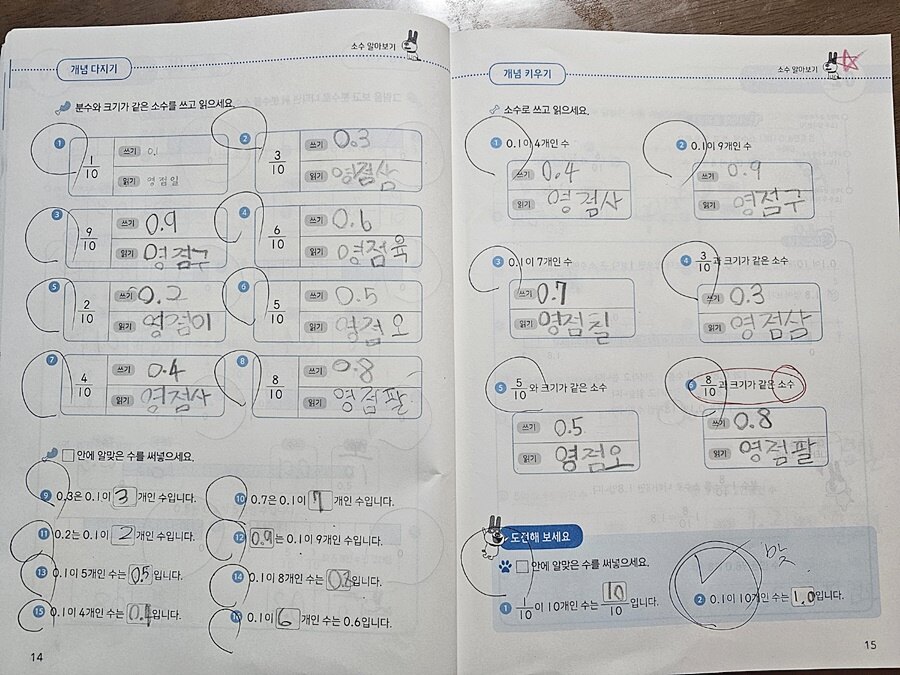 소수 알아보기
개념 다지기
분수와 크기가 같은 소수를 쓰고 읽으세요.
1 1/10 쓰기 0.1
읽기 영 점 일
2 3/10 쓰기 0.3
읽기 영점삼
3 9/10 쓰기 0.9
읽기 영점구
4 6/10 쓰기 0.6
읽기 영점육
5 2/10 쓰기 0.2
읽기 영점이
6 5/10 쓰기 0.5
읽기 영점오
7 4/10 쓰기 0.4
읽기 영점사
8 8/10 쓰기 0.8
읽기 영점팔
□안에 알맞은 수를 써넣으세요.
9 0.3은 0.1이 3 개인 수입니다.
10 0.7은 0.1이 7 개인 수입니다.
11 0.2는 0.1이 2 개인 수입니다.
12 0.9 는 0.1이 9개인 수입니다.
13 0.1이 5개인 수는 0.5 입니다.
14 0.1이 8개인 수는 0.8 입니다.
15 0.1이 4개인 수는 0.4 입니다.
16 0.1이 6 개인 수는 0.6입니다.
14
소수 알아보기
개념 키우기
소수로 쓰고 읽으세요.
1 0.1이 4개인 수
쓰기 0.4
읽기 영점사
2 0.1이 9개인 수
쓰기 0.9
읽기 영점구
3 0.1이 7개인 수
쓰기 0.7
읽기 영점칠
4 3/10과 크기가 같은 소수
쓰기 0.3
읽기 영점삼
5 5/10와 크기가 같은 소수
쓰기 0.5
읽기 영점오
6 8/10과 크기가 같은 소수
쓰기 0.8
읽기 영점팔
도전해 보세요
□안에 알맞은 수를 써넣으세요.
1 1/10이 10개인 수는 10/10 입니다.
2 0.1이 10개인 수는 1.0 입니다.
맞
15